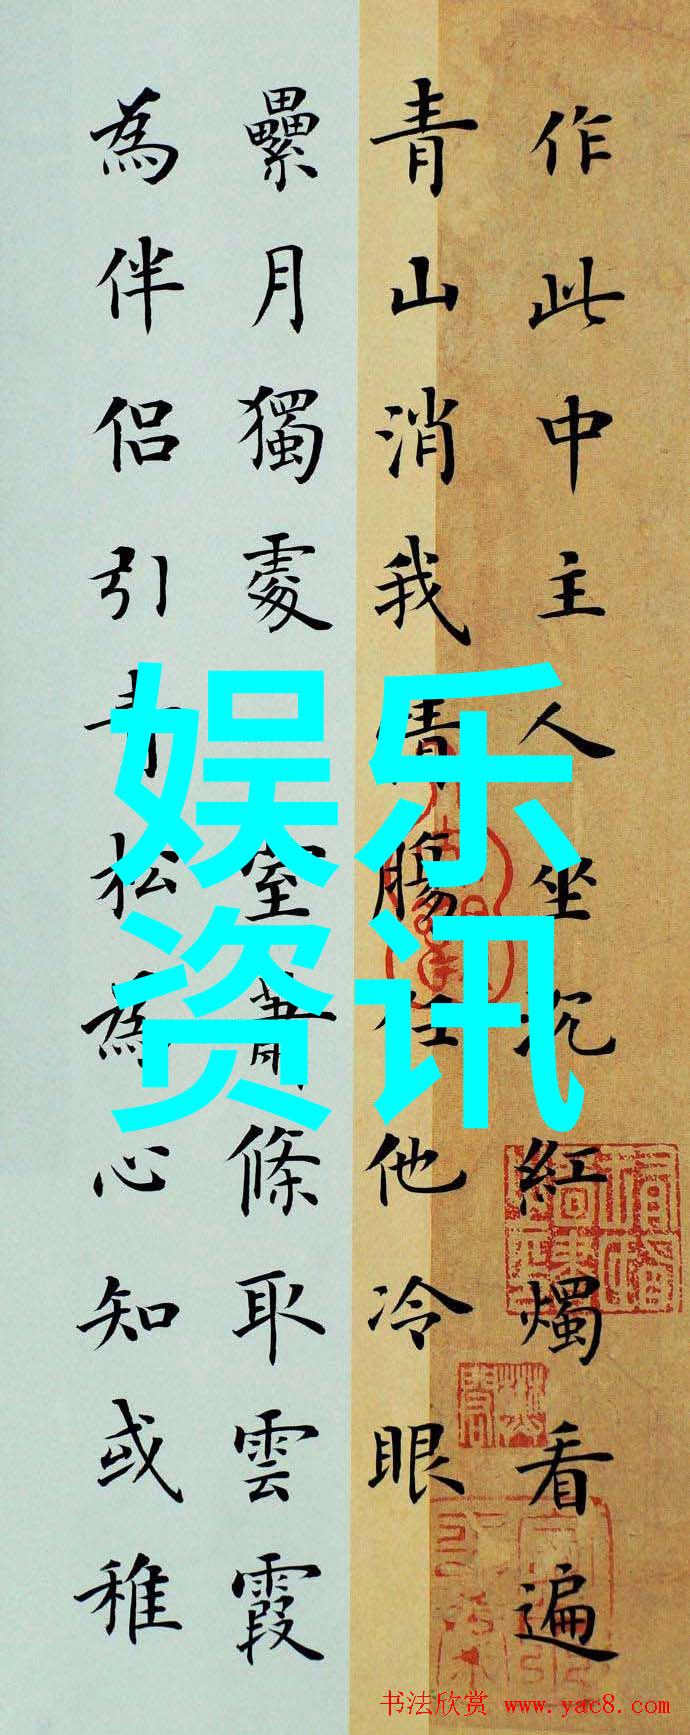 作此中主人坐沉紅燭看遍
青山消我情腸任他冷眼
纍月獨處室蕭條取雲霞
為伴侶引青松為心知或稚
娱乐
资讯
书法欣赏 www.yac8.com